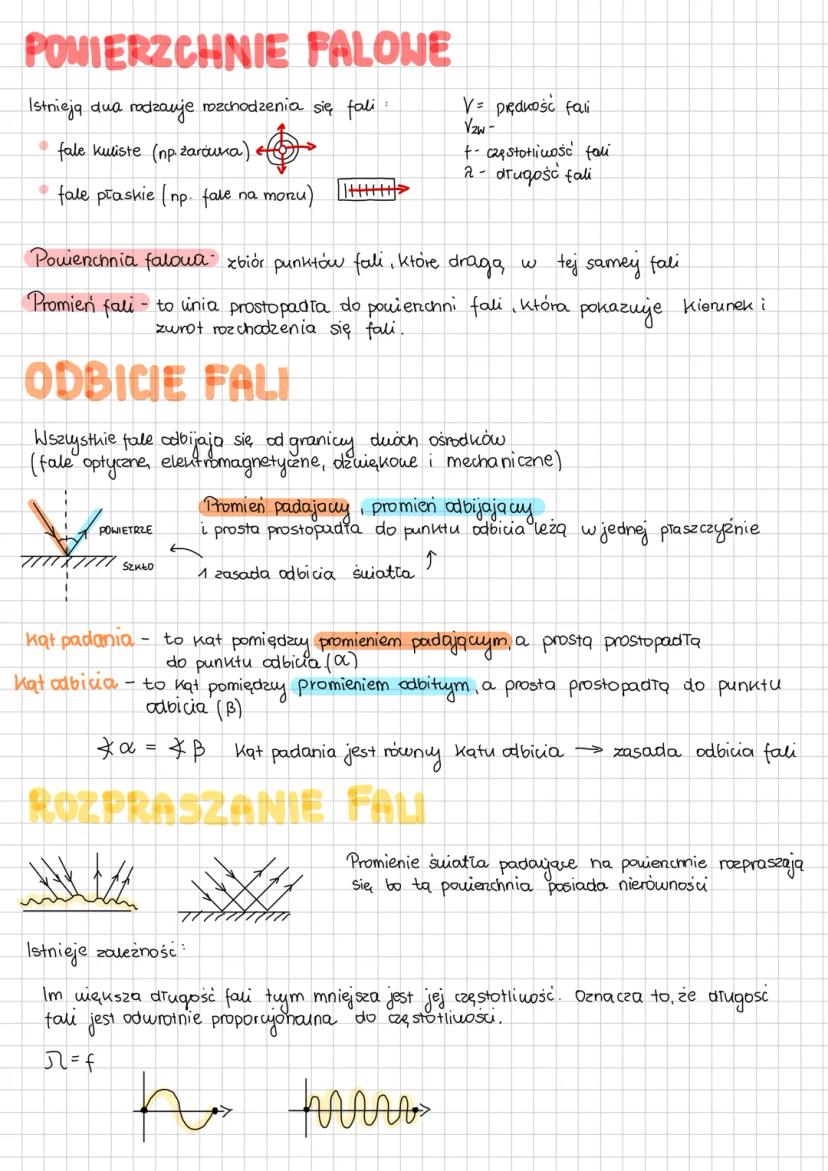 POWIERZCHNIE FALOWE
Istnieją dwa rodzaje rozchodzenia się fali :
• fale kuliste (np. żarówka)
• fale płaskie (np. fale na morzu)
V = prędkość fali
Vzw -
f - częstotliwość fali
λ - długość fali
Powierzchnia falowa - zbiór punktów fali, które drgają w tej samej fali
Promień fali - to linia prostopadła do powierzchni fali, która pokazuje kierunek i
zwrot rozchodzenia się fali.
ODBICIE FALI
Wszystkie fale odbijają się od granicy dwóch ośrodków
(fale optyczne, elektromagnetyczne, dźwiękowe i mechaniczne)
POWIETRZE
SZKŁO
Promień padający, promień odbijający
i prosta prostopadła do punktu odbicia leżą w jednej płaszczyźnie
1 zasada odbicia światła
Kąt padania - to kąt pomiędzy promieniem padającym, a prostą prostopadłą
do punktu odbicia (α)
Kąt odbicia - to kąt pomiędzy promieniem odbitym, a prosta prostopadłą do punktu
odbicia (β)
∢ α = ∢ β Kąt padania jest równy kątu odbicia → zasada odbicia fali
ROZPRASZANIE FALI
Promienie światła padające na powierzchnie rozpraszają
się bo tą powierzchnia posiada nierówności
Istnieje zależność :
Im większa długość fali tym mniejsza jest jej częstotliwość. Oznacza to, że długość
fali jest odwrotnie proporcjonalna do częstotliwości.
= f